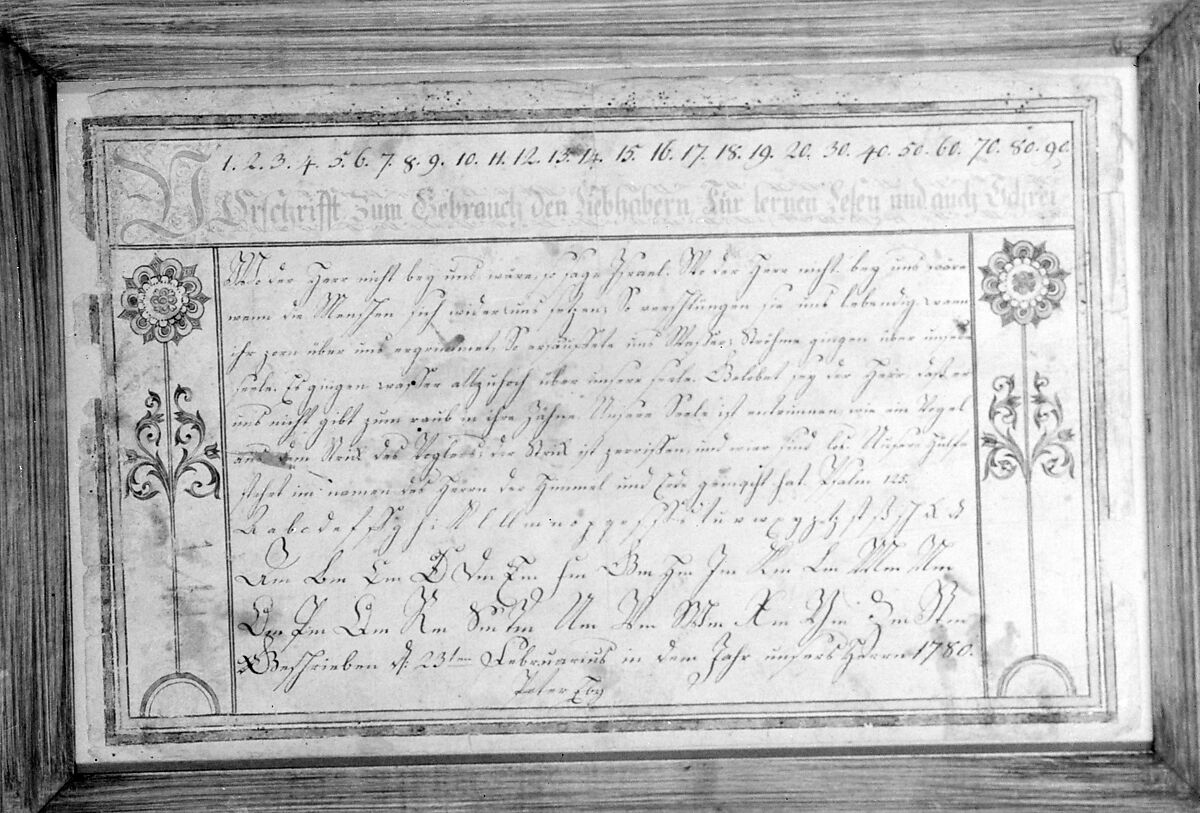 1. 2. 3. 4. 5. 6. 7. 8. 9. 10. 11. 12. 13. 14. 15. 16. 17. 18. 19. 20. 30. 40. 50. 60. 70. 80. 90.
VOrschrifft Zum Gebrauch den Liebhabern Für lernen Lesen und auch Schrei
Wo der Herr nicht bey uns wäre, so sage Israel. Wo der Herr nicht bey uns wäre
wenn die Menschen sich wider uns setzen, So verschlungen sie uns lebendig, wann
ihr zorn über uns ergrimmet, So ersäuffete uns Wasser, Ströhme gingen über unsere
seele. Es gingen wasser allzuhoch über unsere seele. Gelobet sey der Herr daß er
uns nicht gibt zum raub in ihre Zähne. Unsere Seele ist entrunnen, wie ein Vogel
aus dem Strick des Voglers, der Strick ist zerrissen, und wier sind los. Unsere Hülfe
stehet im namen des Herrn der Himmel und Erde gemacht hat. Psalm 125.
Am Bm Cm Dm Em fm Gm Hm Jm Km Lm Mm Nm
Om Pm Qm Rm Sm Tm Um Vm Wm Xm Ym Zm
Geschrieben d. 23ten Februarius in dem Jahr unsers Herrn 1780.
Peter Eby